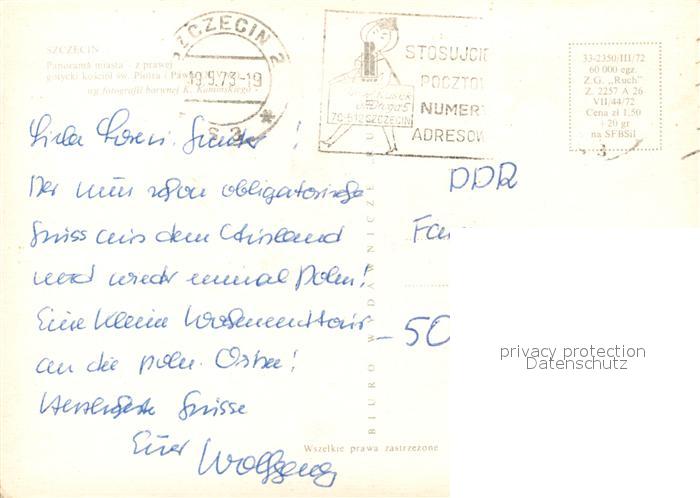 SZCZECIN
Panorama miasta - z prawej
gotycki kościół św. Piotra i Paw
wg fotografii barwnej K. Kamińskiego
SZCZECIN 2
19.9.73-19
STOSUJCIE
POCZTOW
NUMER
ADRESOW
70-512 SZCZECIN
33-2350/III/72
60 000 egz.
Z.G. „Ruch"
Z. 2257 A 26
VII/44/72
Cena zł 1,50
i 20 gr
na SFBSiI
!
Der nun schon obligatorische
Gruss aus dem Ausland
und wieder einmal Polen!
Eine kleine Wochenendtour
an die poln. Ostsee!
Herzlichste Grüsse
Euer Wolfgang
DDR
Fa
50
BIURO WYDAWNICZE RU
Wszelkie prawa zastrzeżone
privacy protection
Datenschutz